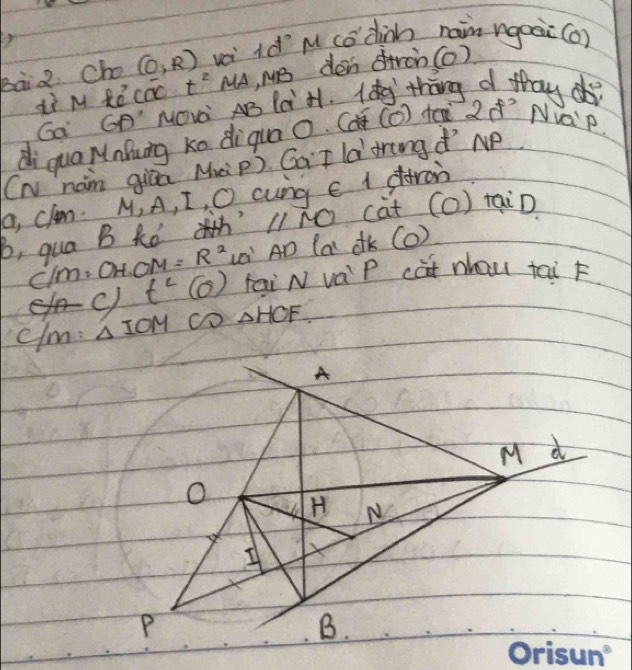 Bài 2. Cho (O,R) với 1 đ' M cố định nằm ngoài (O)
từ M kẻ các t² MA, MB đến đtròn (O)
Gọi GĐ' MO và AB là H. 1 đg' thẳng d thay đổi
đi qua M nhưng ko đi qua O. Cắt (O) tại 2 đ' N và P.
(N nằm giữa M và P). Gọi I là trung đ' NP
a, C/m: M, A, I, O cùng ∈ 1 đtròn
b, qua B kẻ // MO cắt (O) tại D.
C/m: OH.OM = R² và AD là đk (O)
c) t² (O) tại N và P cắt nhau tại F.
C/m: △IOM ∽ △HOF.
A
M d
O
H
N
I
P
B
Orisun®